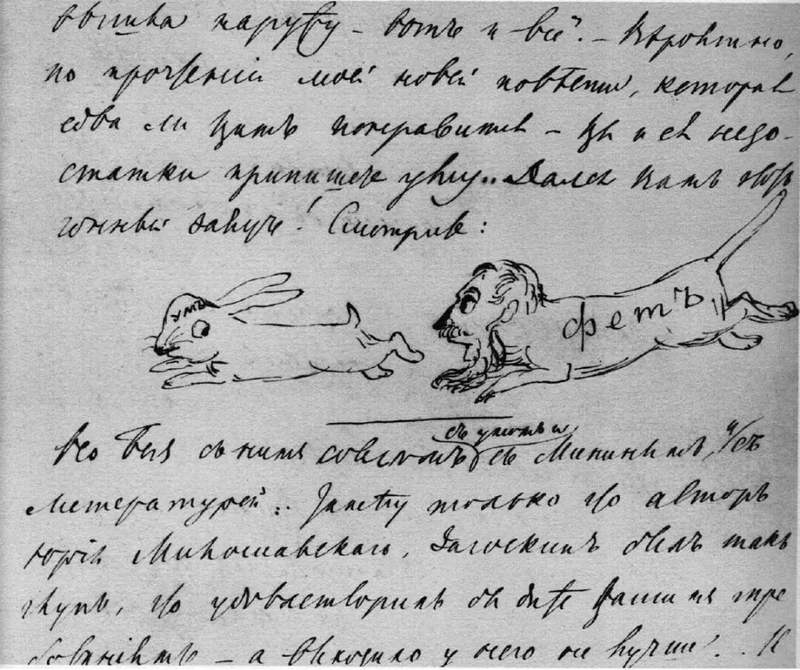 вышла наружу – вотъ и всё. – Вѣроятно,
по прочтеніи моей новой повѣсти, которая
едва ли Вамъ понравится – Вы и ея недо-
статки припишете уму.. Дался Вамъ
гонный заяцъ! Смотрите:
умъ
фетъ
Богъ съ нимъ совсѣмъ съ умомъ и съ Мининымъ, и съ
литературой. Замѣчу только что авторъ
Юрія Милославскаго, Загоскинъ былъ такъ
глупъ, что удовлетворилъ бы даже Вашимъ тре
бованіямъ – а выходило у него не лучше. И